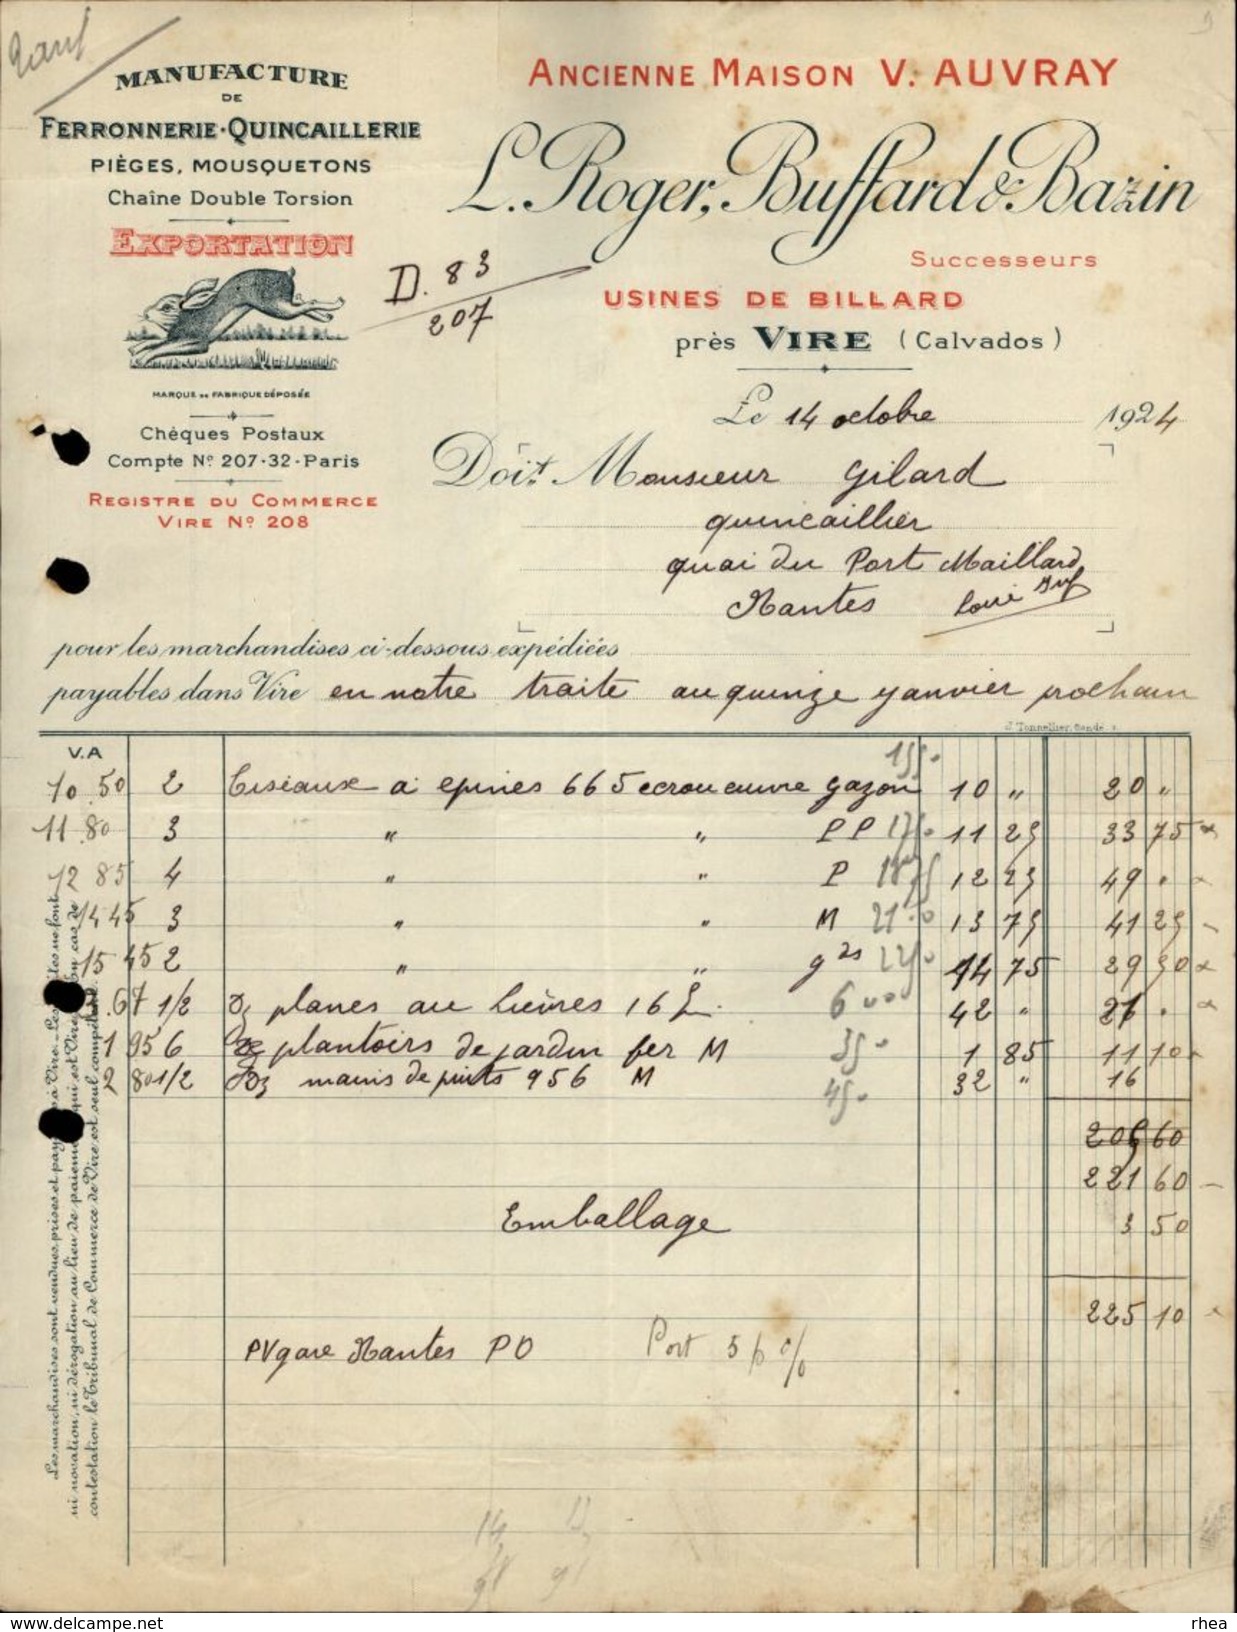 MANUFACTURE
DE
FERRONNERIE·QUINCAILLERIE
PIÈGES, MOUSQUETONS
Chaîne Double Torsion
EXPORTATION
MARQUE DE FABRIQUE DÉPOSÉE
Chéques Postaux
Compte Nº 207·32-Paris
REGISTRE DU COMMERCE
VIRE Nº 208
ANCIENNE MAISON V. AUVRAY
L. Roger, Buffard & Bazin
Successeurs
USINES DE BILLARD
près VIRE (Calvados)
D. 83
207
Le 14 octobre 1924
Doit Monsieur Gilard
quincaillier
quai du Port Maillard
Nantes Loire Inf
pour les marchandises ci-dessous expédiées
payables dans Vire en notre traite au quinze janvier prochain
J. Tonnellier, Condé
V.A
10.50 2 Ciseaux a epines 665 ecrou cuivre gazon 10 " 20 "
11 80 3 " " PP 11 25 33 75
12 85 4 " " P 12 25 49 "
14 45 3 " " M 13 75 41 25
15 45 2 " " gds 14 75 29 50
.67 1/2 Dz planes au lièvres 16 42 " 21 "
1 95 6 plantoirs de jardin fer M 1 85 11 10
2 80 1/2 Dz mains de puits 956 M 32 " 16
205 60
221 60
Emballage 3 50
225 10
PV gare Nantes PD Port
Les marchandises sont vendues, prises et payables à Vire. Les traites ne font
ni novation, ni dérogation au lieu de paiement qui est Vire. En cas de
contestation le Tribunal de Commerce de Vire est seul compétent.
www.delcampe.net
rhea